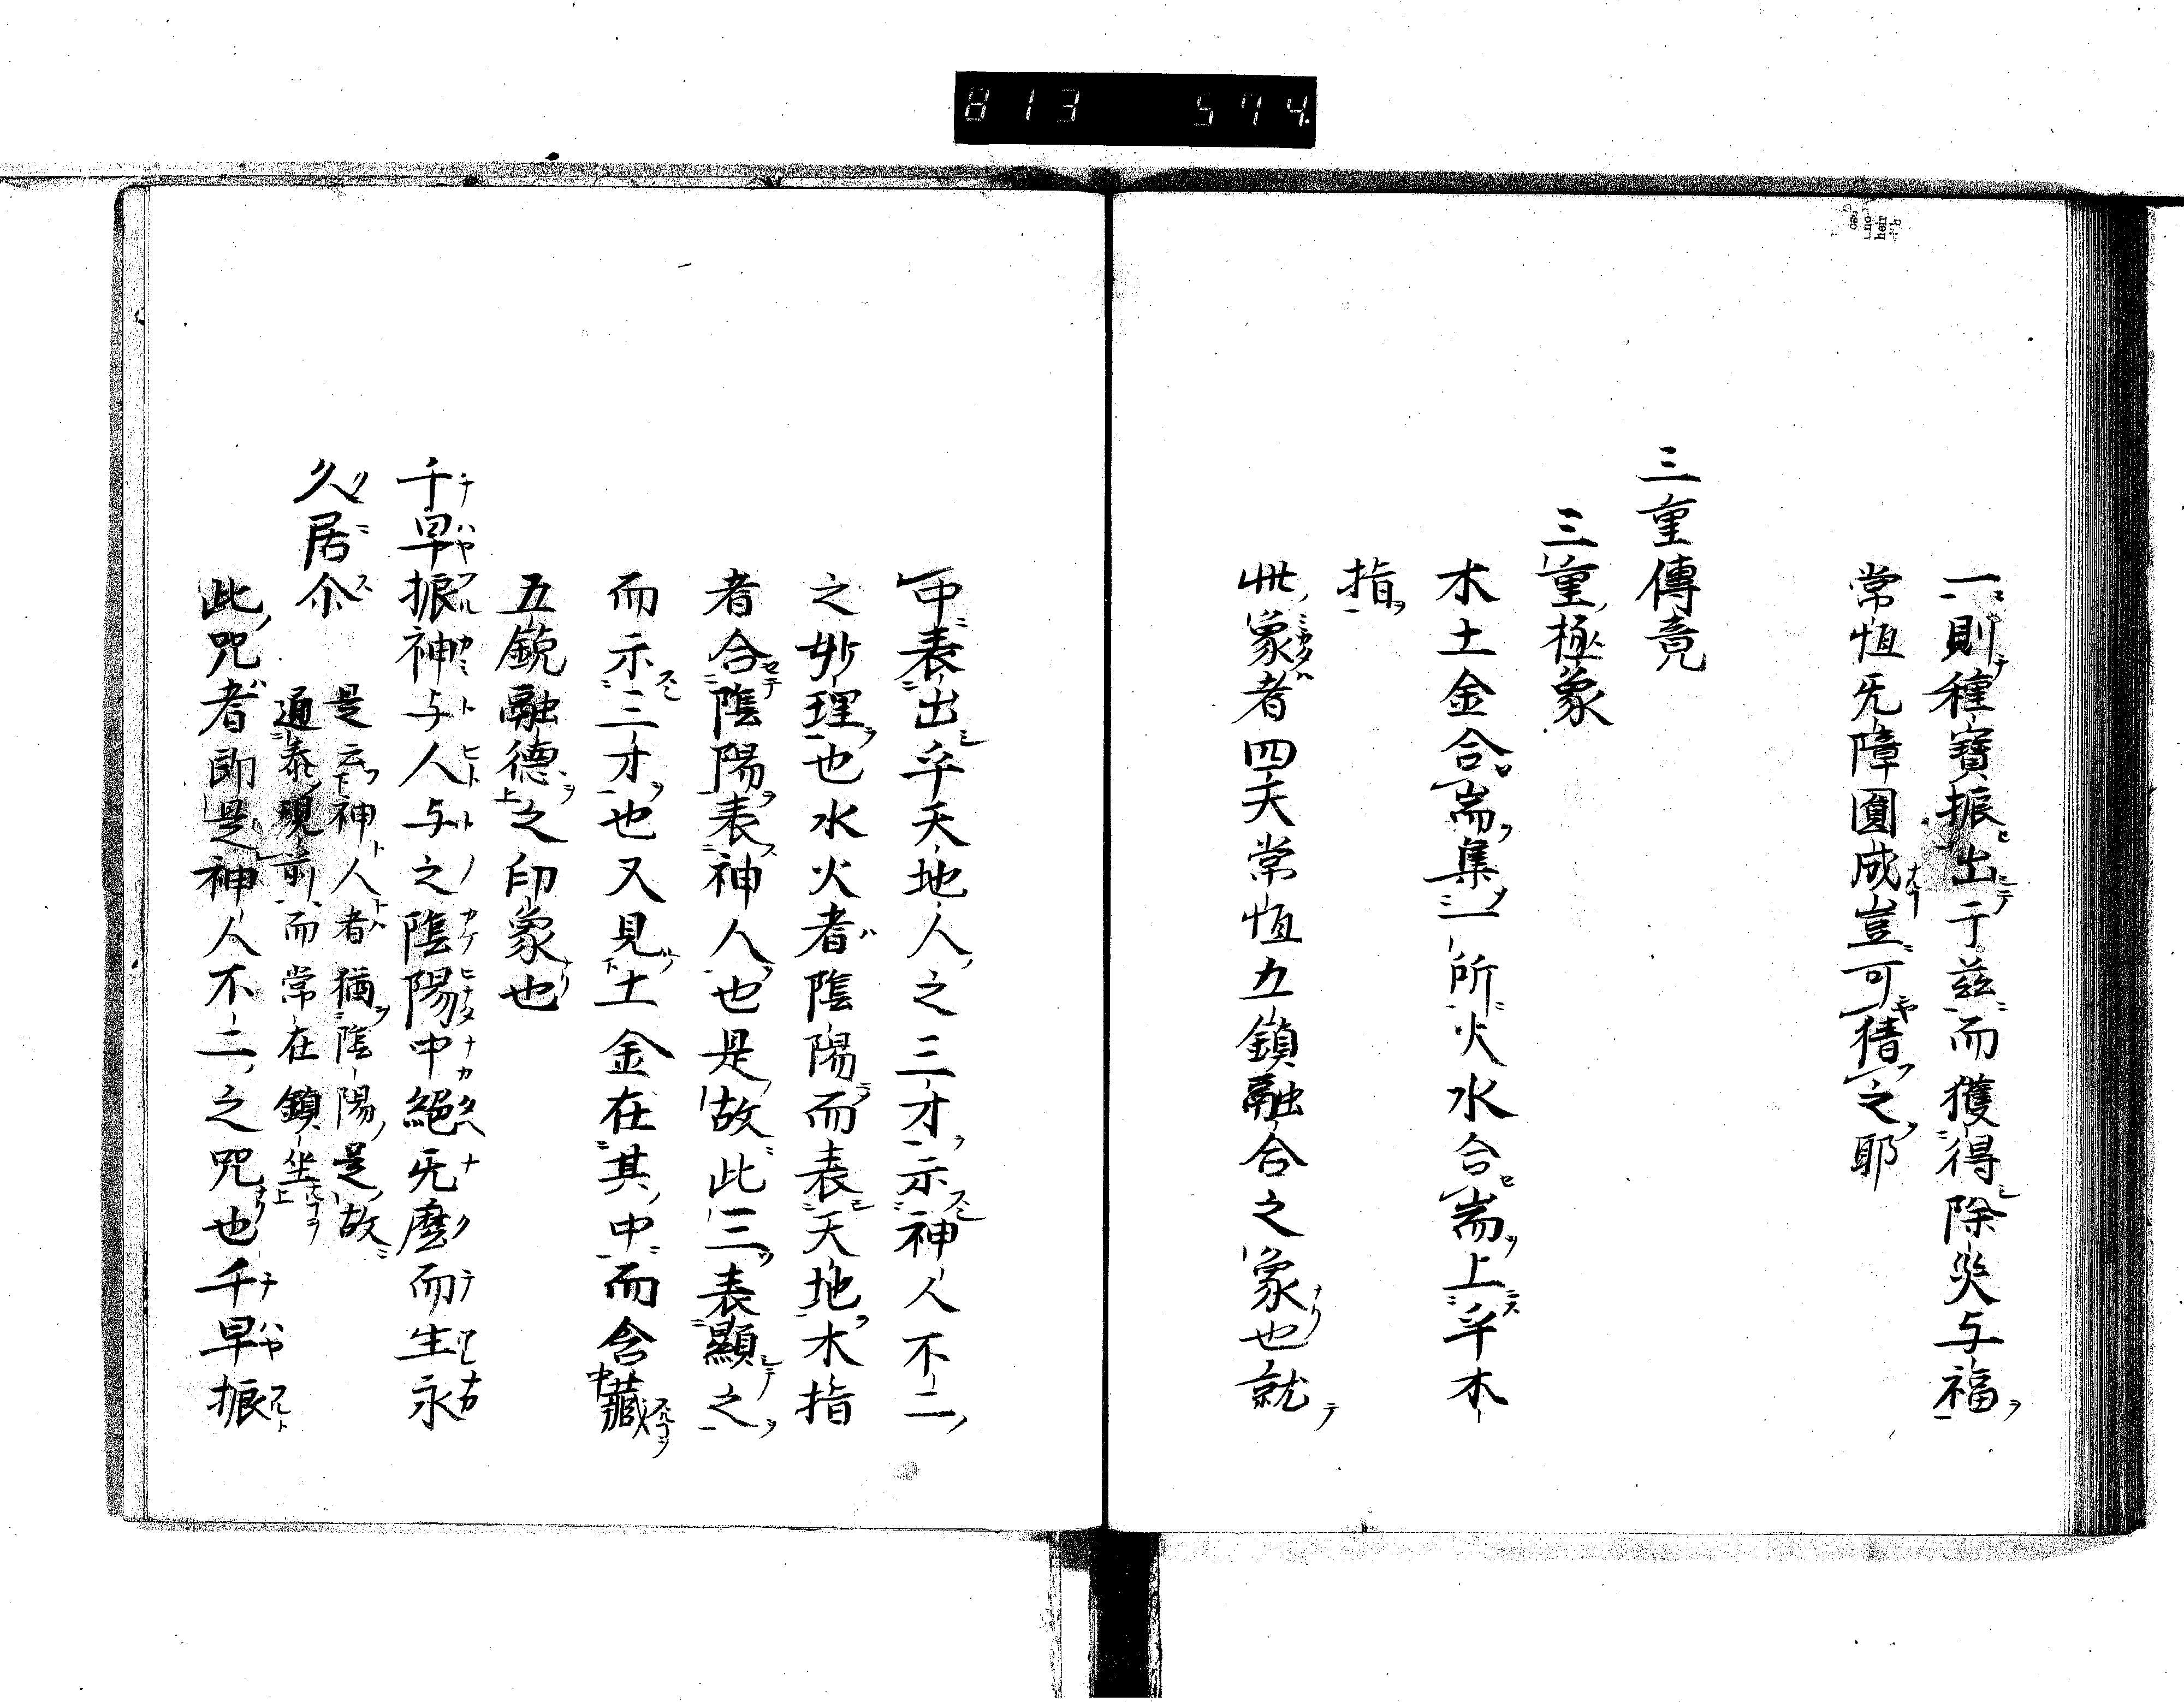 813 574.
一則種寳振出于兹而獲得除災与福
常恒旡障圓成豈可猜之耶
三重傳竟
三重極象
木土金合耑集一所火水合耑上乎木
指
此象者四天常恒五鎖融合之象也就
中表出乎天地人之三才示神人不二
之妙理也水火者陰陽而表天地木指
者合陰陽表神人也是故此三表顯之
而示三才也又見土金在其中而含藏
五鋭融德之印象也
千早振神与人与之陰陽中絕旡麼而生永
久居尒
是云神人者猶陰陽是故
通泰現前而常在鎮坐
此咒者即是神人不二之咒也千早振